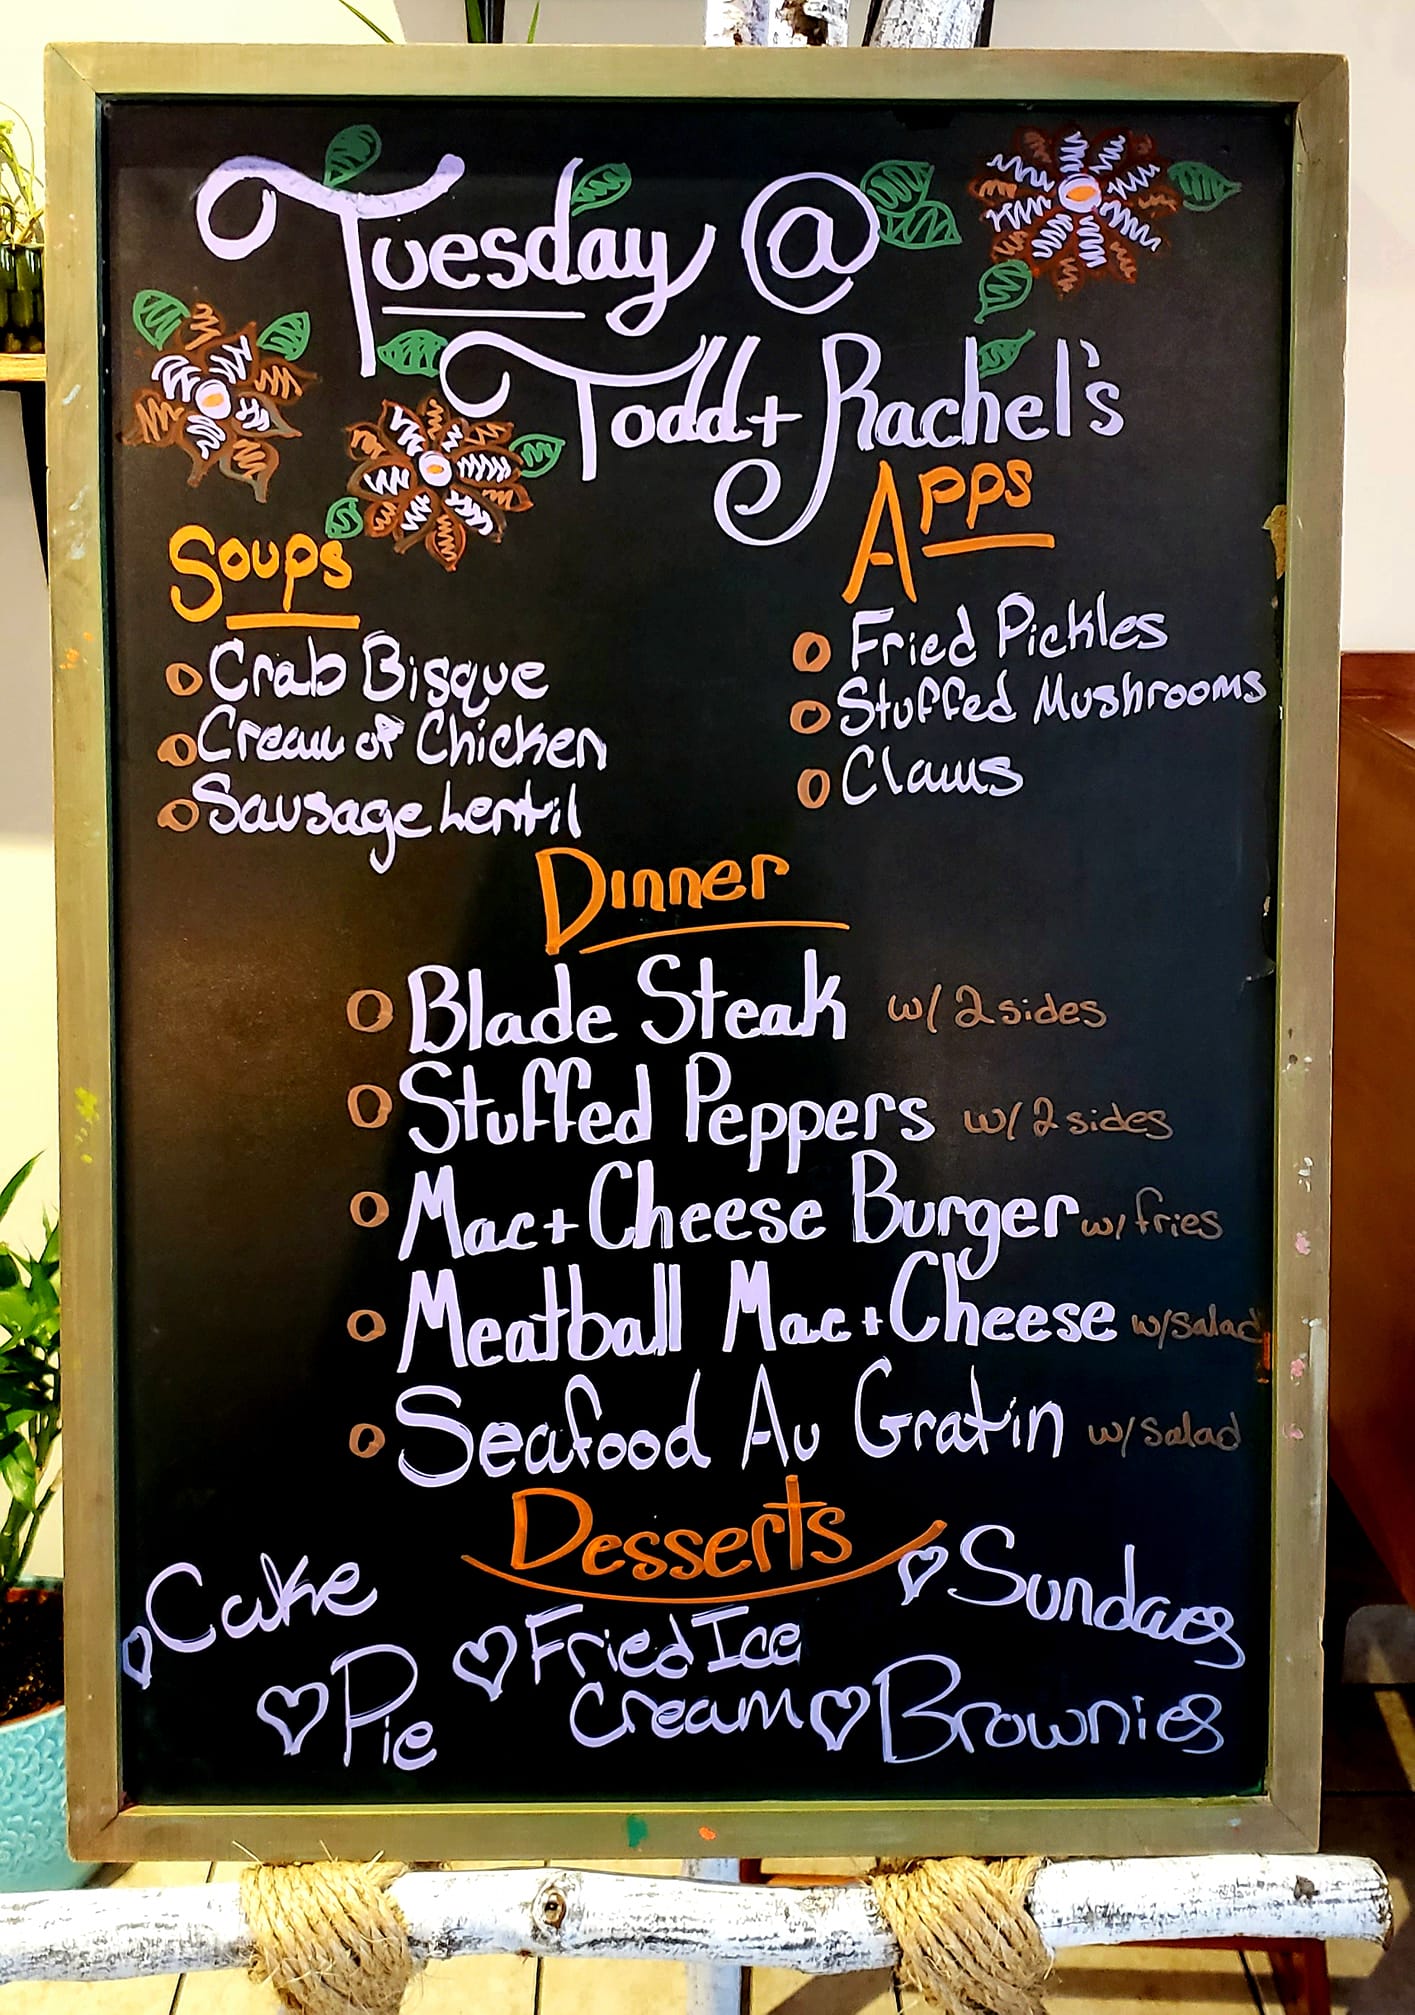 Tuesday @
Todd + Rachel's
Soups
Crab Bisque
Cream of Chicken
Sausage Lentil
Apps
Fried Pickles
Stuffed Mushrooms
Claws
Dinner
Blade Steak w/ 2 sides
Stuffed Peppers w/ 2 sides
Mac + Cheese Burger w/ fries
Meatball Mac + Cheese w/ salad
Seafood Au Gratin w/ salad
Desserts
Cake
Pie
Fried Ice
Cream
Sundaes
Brownies